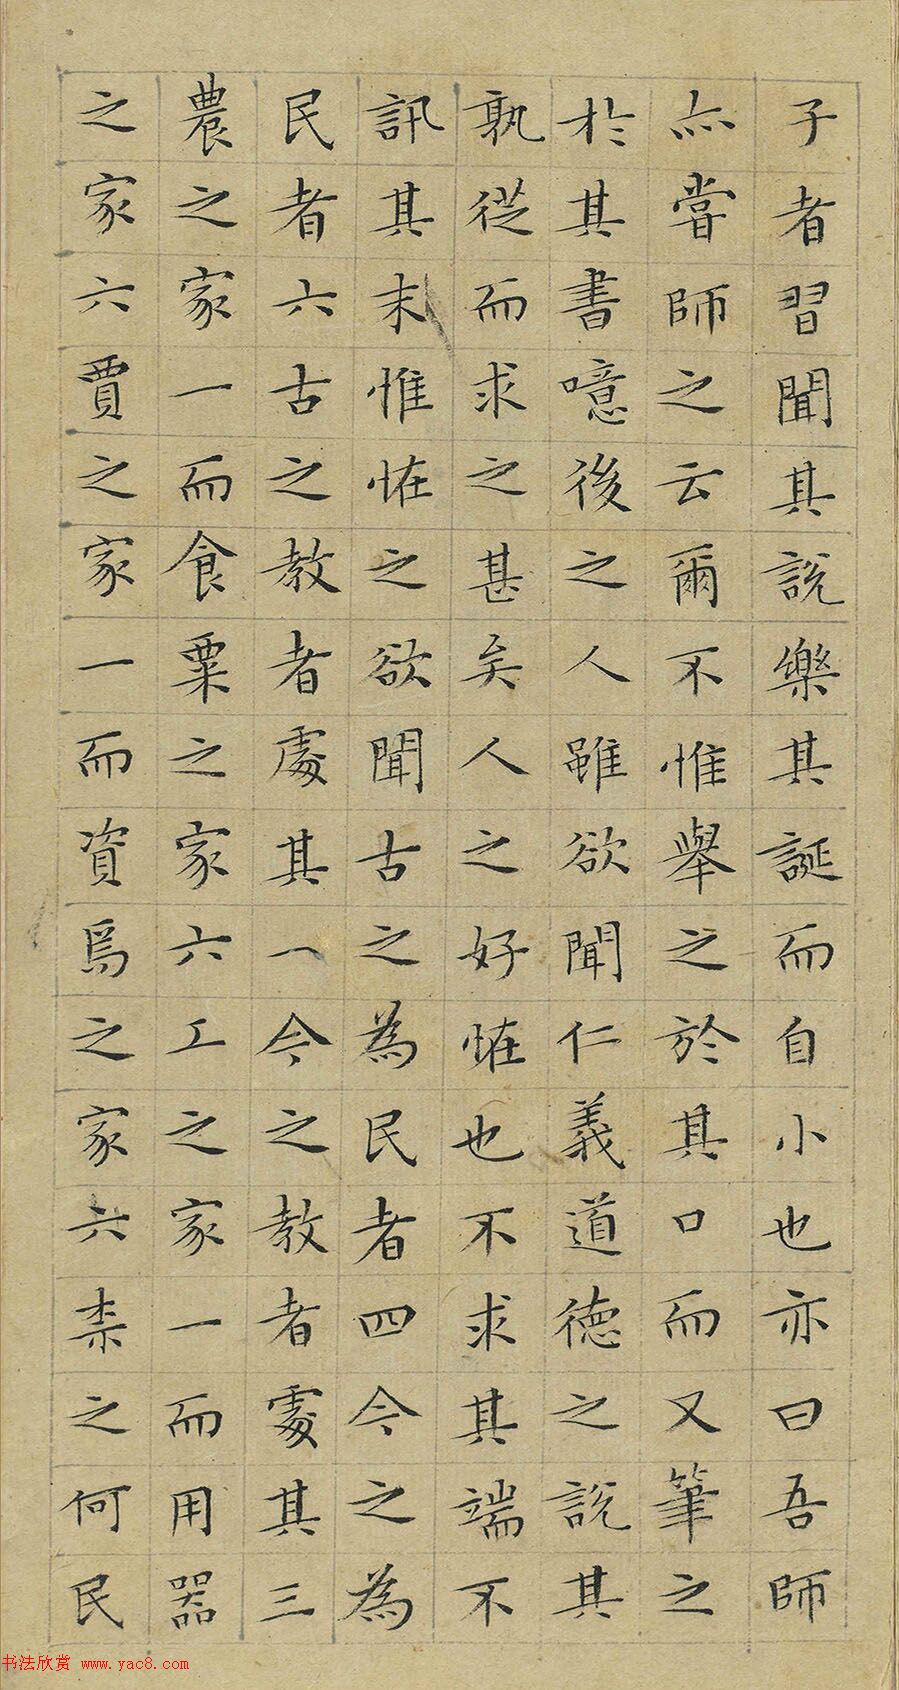 子者習聞其說樂其誕而自小也亦曰吾師
亦嘗師之云爾不惟舉之於其口而又筆之
於其書噫後之人雖欲聞仁義道德之說其
孰從而求之甚矣人之好怪也不求其端不
訊其末惟怪之欲聞古之為民者四今之為
民者六古之教者處其一今之教者處其三
農之家一而食粟之家六工之家一而用器
之家六賈之家一而資焉之家六柰之何民
书法欣赏 www.yac8.com